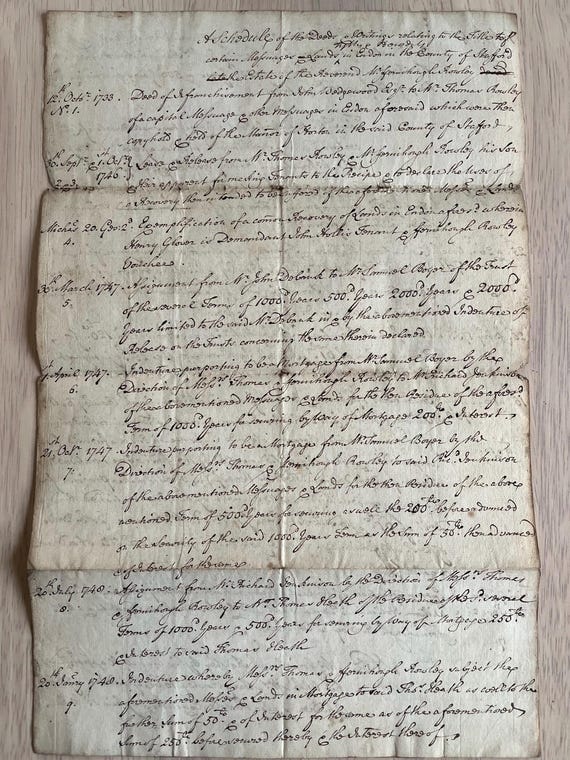 A Schedule of the Deeds & Writings relating to the Title to
certain Messuages & Lands in Endon in the County of Stafford
the Estate of the Reverend Mr Fernihough Rowley
12th Octor 1733. Deed of Infranchisement from John Wedgewood Esqr to Mr Thomas Rowley
No 1. of a capital Messuage & other Messuages in Endon aforesaid which were then
copyhold & held of the Manor of Horton in the said County of Stafford
Septr & 1st Octr Lease & Release from Mr Thomas Rowley & Mr Fernihough Rowley his Son
1746 & Heir apparent for making Tenants to the Recipe & to declare the Uses of
a Recovery then intended to be suffered of the aforementioned Messes & Lands
Michas 20. Geo: 2d Exemplification of a common Recovery of Lands in Endon aforesd wherein
4. Henry Glover is Demandant John Tenant & Fernihough Rowley
Vouchee
March 1747. Assignment from Mr John Debank to Mr Samuel Boyer of the Trust
5. of the several Terms of 1000d Years 500d Years 2000d Years & 2000d
Years limited to the said Mr Debank in & by the abovementioned Indenture of
Release on the Trusts concerning the same therein declared
April 1747. Indenture purporting to be a Mortgage from Mr Samuel Boyer by the
6. Direction of Messrs Thomas & Fernihough Rowley to Mr Richard Jenkinson
of the abovementioned Messuages & Lands for the then Residue of the aforesd
Term of 1000d Years for securing by Way of Mortgage 200£ & Interest
21st Octr 1747 Indenture purporting to be a Mortgage from Mr Samuel Boyer by the
7. Direction of Messrs Thomas & Fernihough Rowley to said Richd Jenkinson
of the abovementioned Messuages & Lands for the then Residue of the above
mentioned Term of 500d Years for securing as well the 200£ before advanced
on the Security of the said 1000d Years Term as the Sum of 50£ then advanced
& Interest for the same
July 1748. Assignment from Mr Richard Jenkinson by the Direction of Messrs Thomas
8. & Fernihough Rowley to Mr Thomas Heath of the Residue of the sd several
Terms of 1000d Years & 500d Years for securing by Way of Mortgage 250£
& Interest to said Thomas Heath
20th Janry 1748. Indenture whereby Messrs Thomas & Fernihough Rowley subject the
9. aforementioned Messes & Lands in Mortgage to said Thos Heath as well to the
further Sum of 50£ & of Interest for the same as of the aforementioned
Sum of 250£ before secured thereby & the Interest thereof